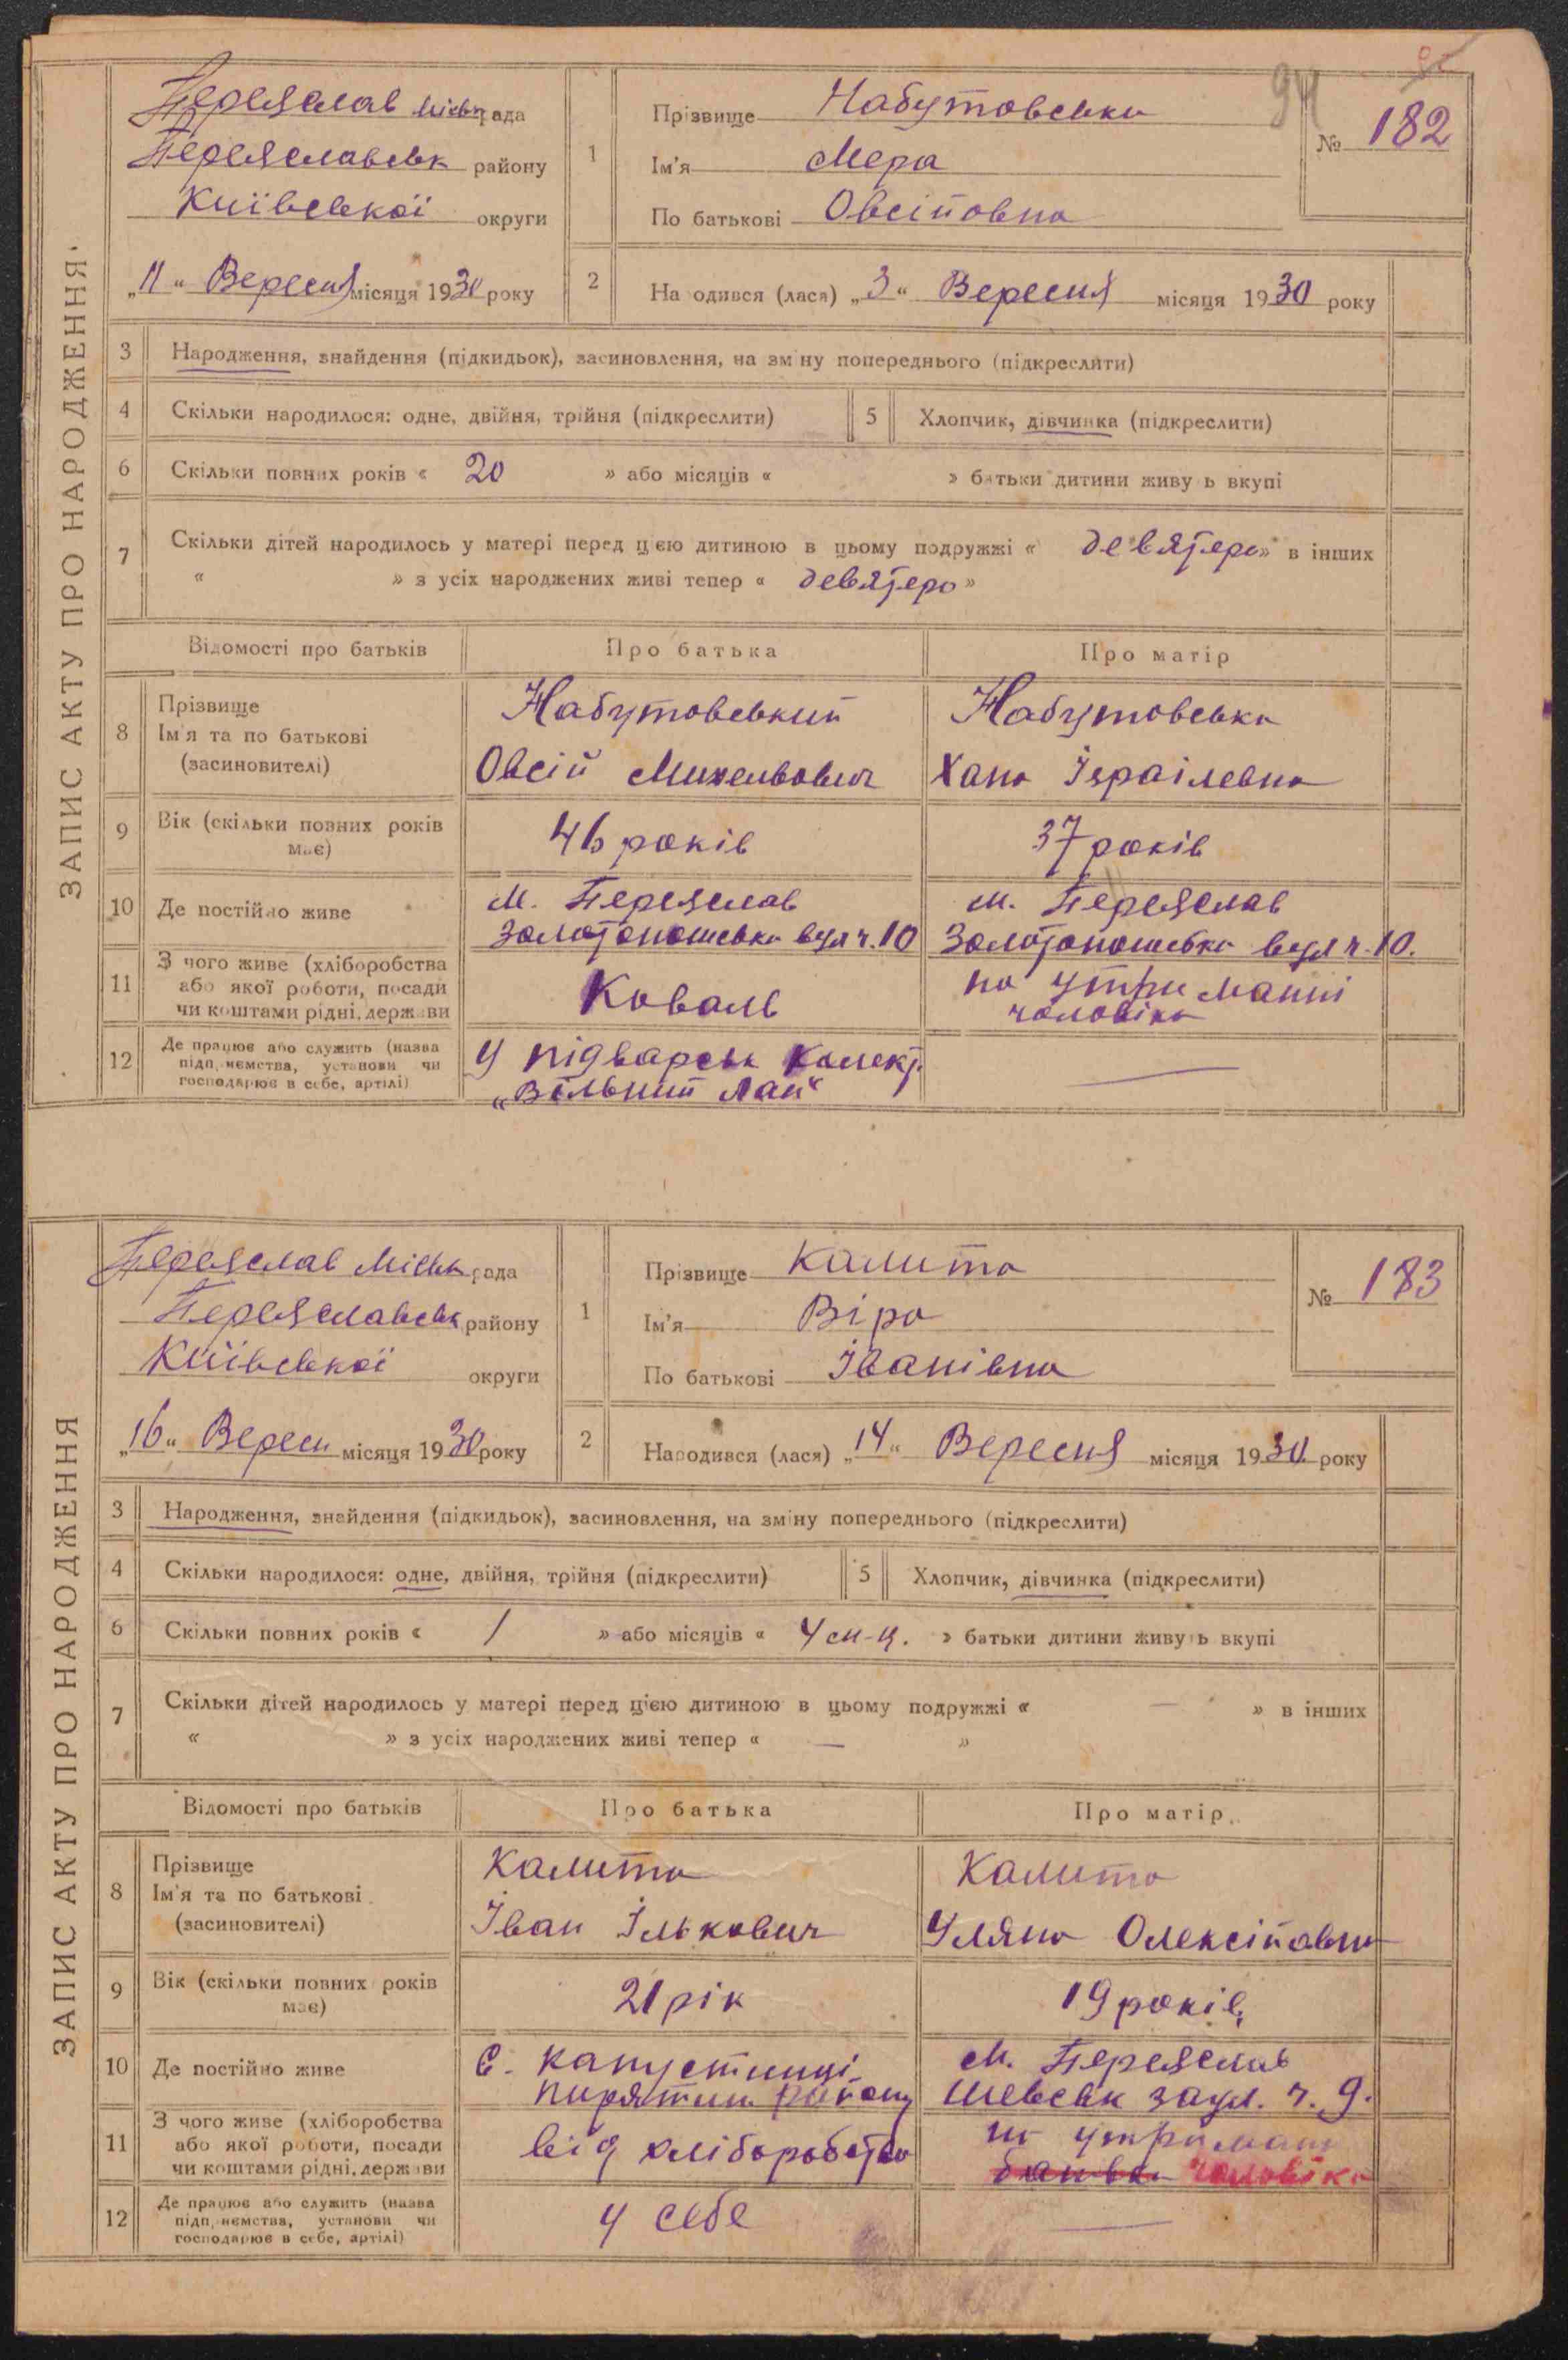 94
ЗАПИС АКТУ ПРО НАРОДЖЕННЯ.
Переяслав міськ рада
Переяславськ району
Київської округи
„11“ Вересня місяця 1930 року
1
Прізвище Набутовська
Ім'я Мера
По батькові Овсіовна
№ 182
2
На одився (лася) „3“ Вересня місяця 1930 року
3 Народження, знайдення (підкидьок), засиновлення, на зміну попереднього (підкреслити)
4 Скільки народилося: одне, двійня, трійня (підкреслити) 5 Хлопчик, дівчинка (підкреслити)
6 Скільки повних років « 20 » або місяців « » батьки дитини живу ь вкупі
7 Скільки дітей народилось у матері перед цією дитиною в цьому подружжі « дев'ятеро » в інших
« » з усіх народжених живі тепер « девятеро »
Відомості про батьків Про батька Про матір
8 Прізвище Набутовський Набутовська
Ім'я та по батькові
(засиновителі) Овсій Михельвович Хана Ізраілевна
9 Вік (скільки повних років має) 46 років 37 років
10 Де постійно живе м. Переяслав м. Переяслав
Золотоношська вул ч. 10 Золотоношська вул ч. 10.
11 З чого живе (хліборобства
або якої роботи, посади
чи коштами рідні, держави Коваль на утриманні
чоловіка
12 Де працює або служить (назва
підприємства, установи чи
господарює в себе, артілі) У підварськ колект.
„Вільний Лан“ —
ЗАПИС АКТУ ПРО НАРОДЖЕННЯ
Переяслав Міськ рада
Переяславськ району
Київської округи
„16“ Вересн місяця 1930 року
1
Прізвище Калита
Ім'я Віра
По батькові Іванівна
№ 183
2
Народився (лася) „14“ Вересня місяця 1930 року
3 Народження, знайдення (підкидьок), засиновлення, на зміну попереднього (підкреслити)
4 Скільки народилося: одне, двійня, трійня (підкреслити) 5 Хлопчик, дівчинка (підкреслити)
6 Скільки повних років « 1 » або місяців « 4 м-ц. » батьки дитини живуть вкупі
7 Скільки дітей народилось у матері перед цією дитиною в цьому подружжі « — » в інших
« » з усіх народжених живі тепер « — »
Відомості про батьків Про батька Про матір
8 Прізвище Калита Калита
Ім'я та по батькові
(засиновителі) Іван Ількович Уляна Олексіовна
9 Вік (скільки повних років має) 21 рік 19 років
10 Де постійно живе С. Капустинці м. Переяслав
Пирятин. району Шевськ заул. ч. 9.
11 З чого живе (хліборобства
або якої роботи, посади
чи коштами рідні, держави від хліборобства на утриман
чоловіка
12 Де працює або служить (назва
підприємства, установи чи
господарює в себе, артілі) у себе —